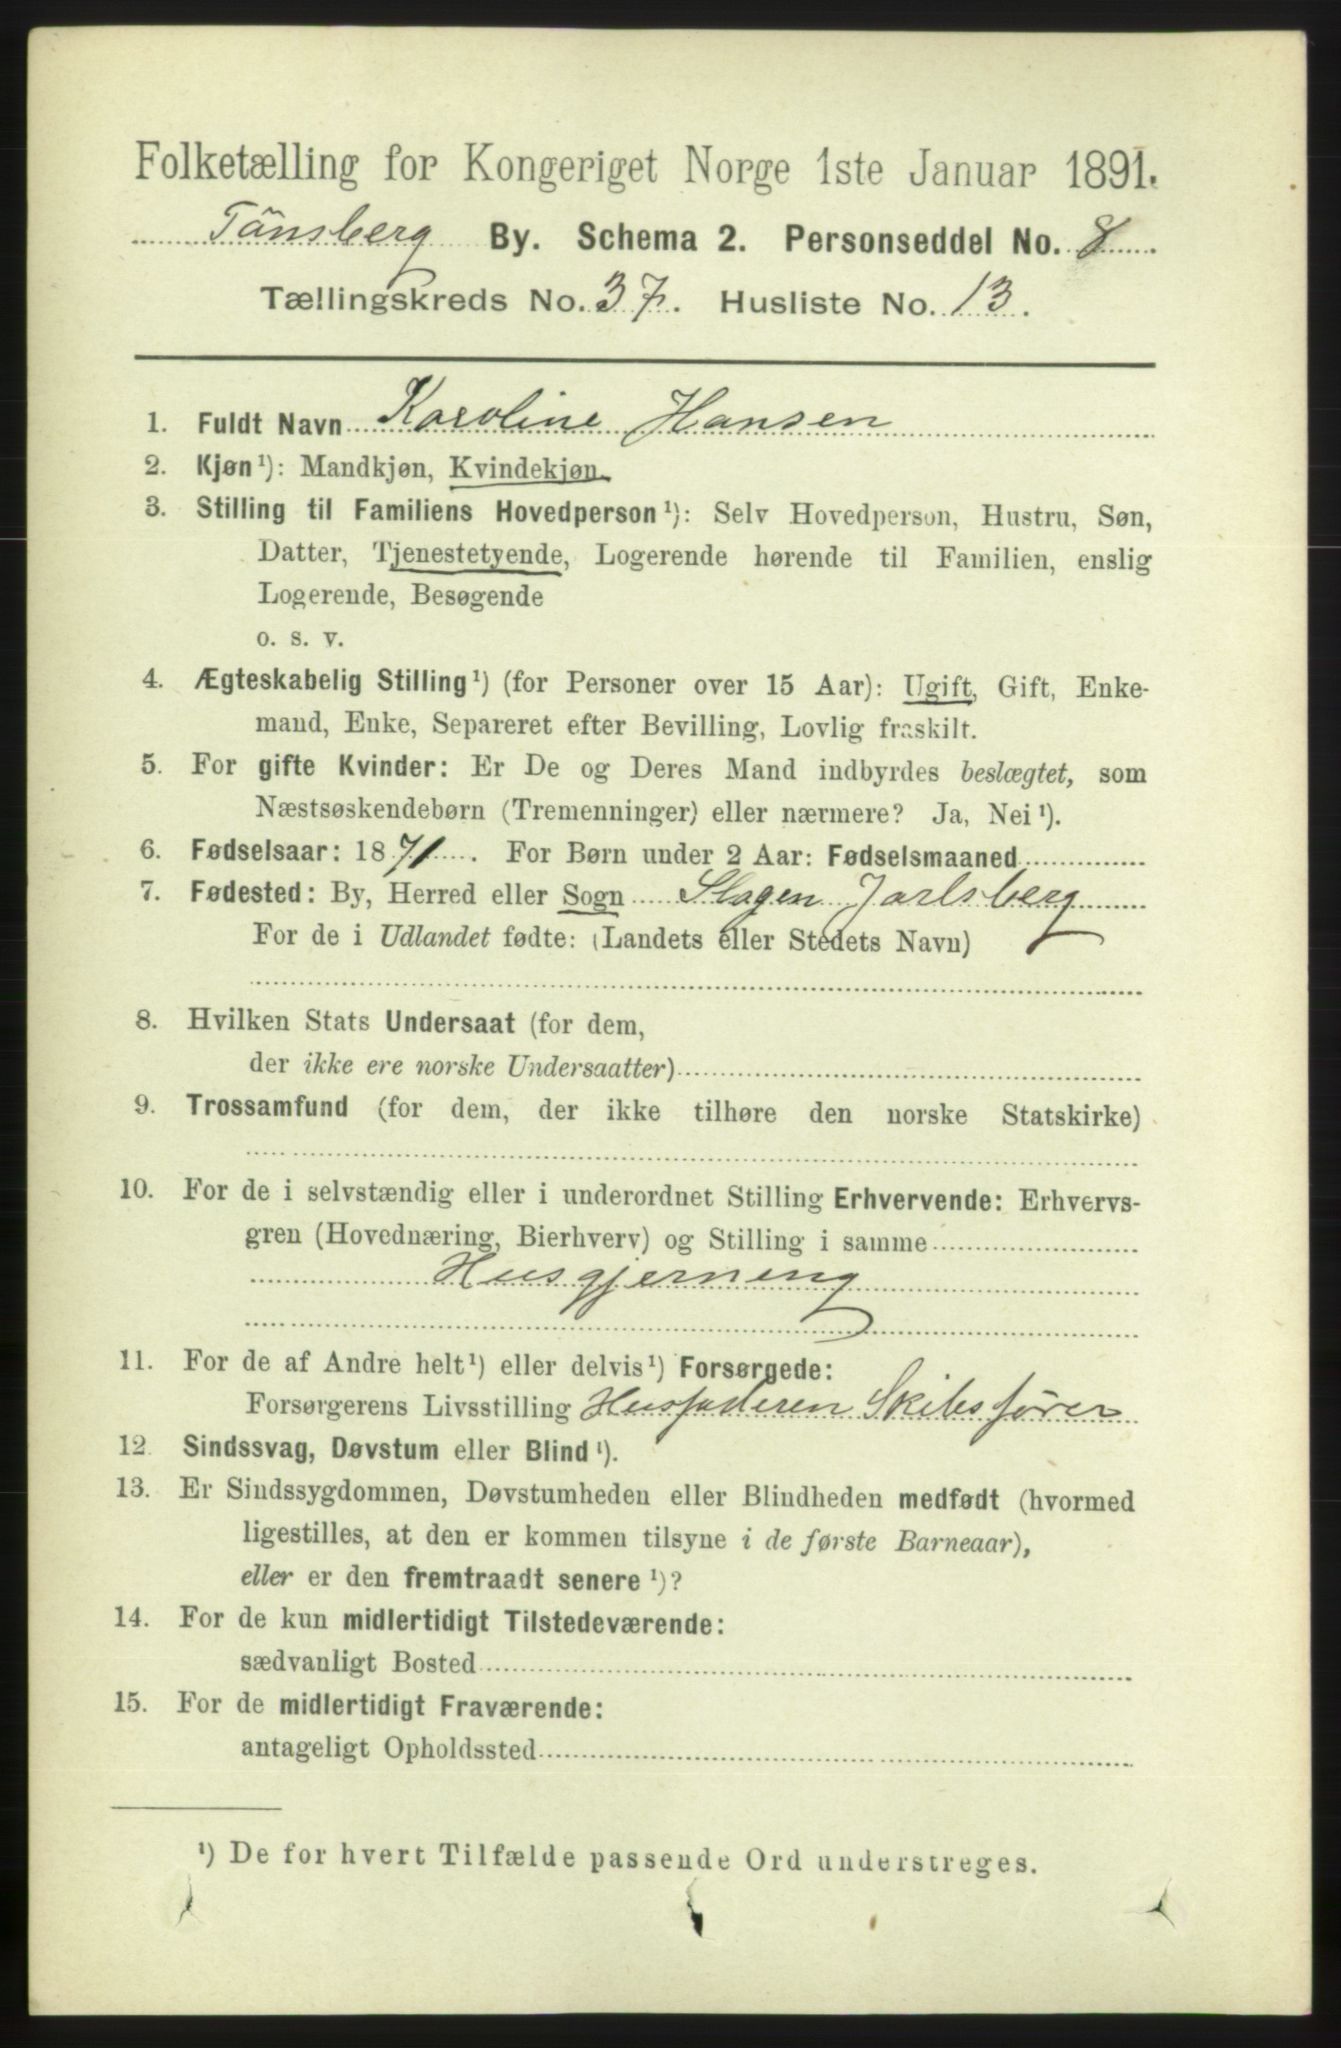 Folketælling for Kongeriget Norge 1ste Januar 1891.
Tönsberg By. Schema 2. Personseddel No. 8
Tællingskreds No. 37. Husliste No. 13.
1. Fuldt Navn Karoline Hansen
2. Kjøn¹): Mandkjøn, Kvindekjøn.
3. Stilling til Familiens Hovedperson¹): Selv Hovedperson, Hustru, Søn,
Datter, Tjenestetyende, Logerende hørende til Familien, enslig
Logerende, Besøgende
o. s. v.
4. Ægteskabelig Stilling¹) (for Personer over 15 Aar): Ugift, Gift, Enke-
mand, Enke, Separeret efter Bevilling, Lovlig fraskilt.
5. For gifte Kvinder: Er De og Deres Mand indbyrdes beslægtet, som
Næstsøskendebørn (Tremenninger) eller nærmere? Ja, Nei¹).
6. Fødselsaar: 1871. For Børn under 2 Aar: Fødselsmaaned
7. Fødested: By, Herred eller Sogn Slagen Jarlsberg
For de i Udlandet fødte: (Landets eller Stedets Navn)
8. Hvilken Stats Undersaat (for dem,
der ikke ere norske Undersaatter)
9. Trossamfund (for dem, der ikke tilhøre den norske Statskirke)
10. For de i selvstændig eller i underordnet Stilling Erhvervende: Erhvervs-
gren (Hovednæring, Bierhverv) og Stilling i samme
Husgjerning
11. For de af Andre helt¹) eller delvis¹) Forsørgede:
Forsørgerens Livsstilling Husfaderen Skibsfører
12. Sindssvag, Døvstum eller Blind¹).
13. Er Sindssygdommen, Døvstumheden eller Blindheden medfødt (hvormed
ligestilles, at den er kommen tilsyne i de første Barneaar),
eller er den fremtraadt senere¹)?
14. For de kun midlertidigt Tilstedeværende:
sædvanligt Bosted
15. For de midlertidigt Fraværende:
antageligt Opholdssted
¹) De for hvert Tilfælde passende Ord understreges.